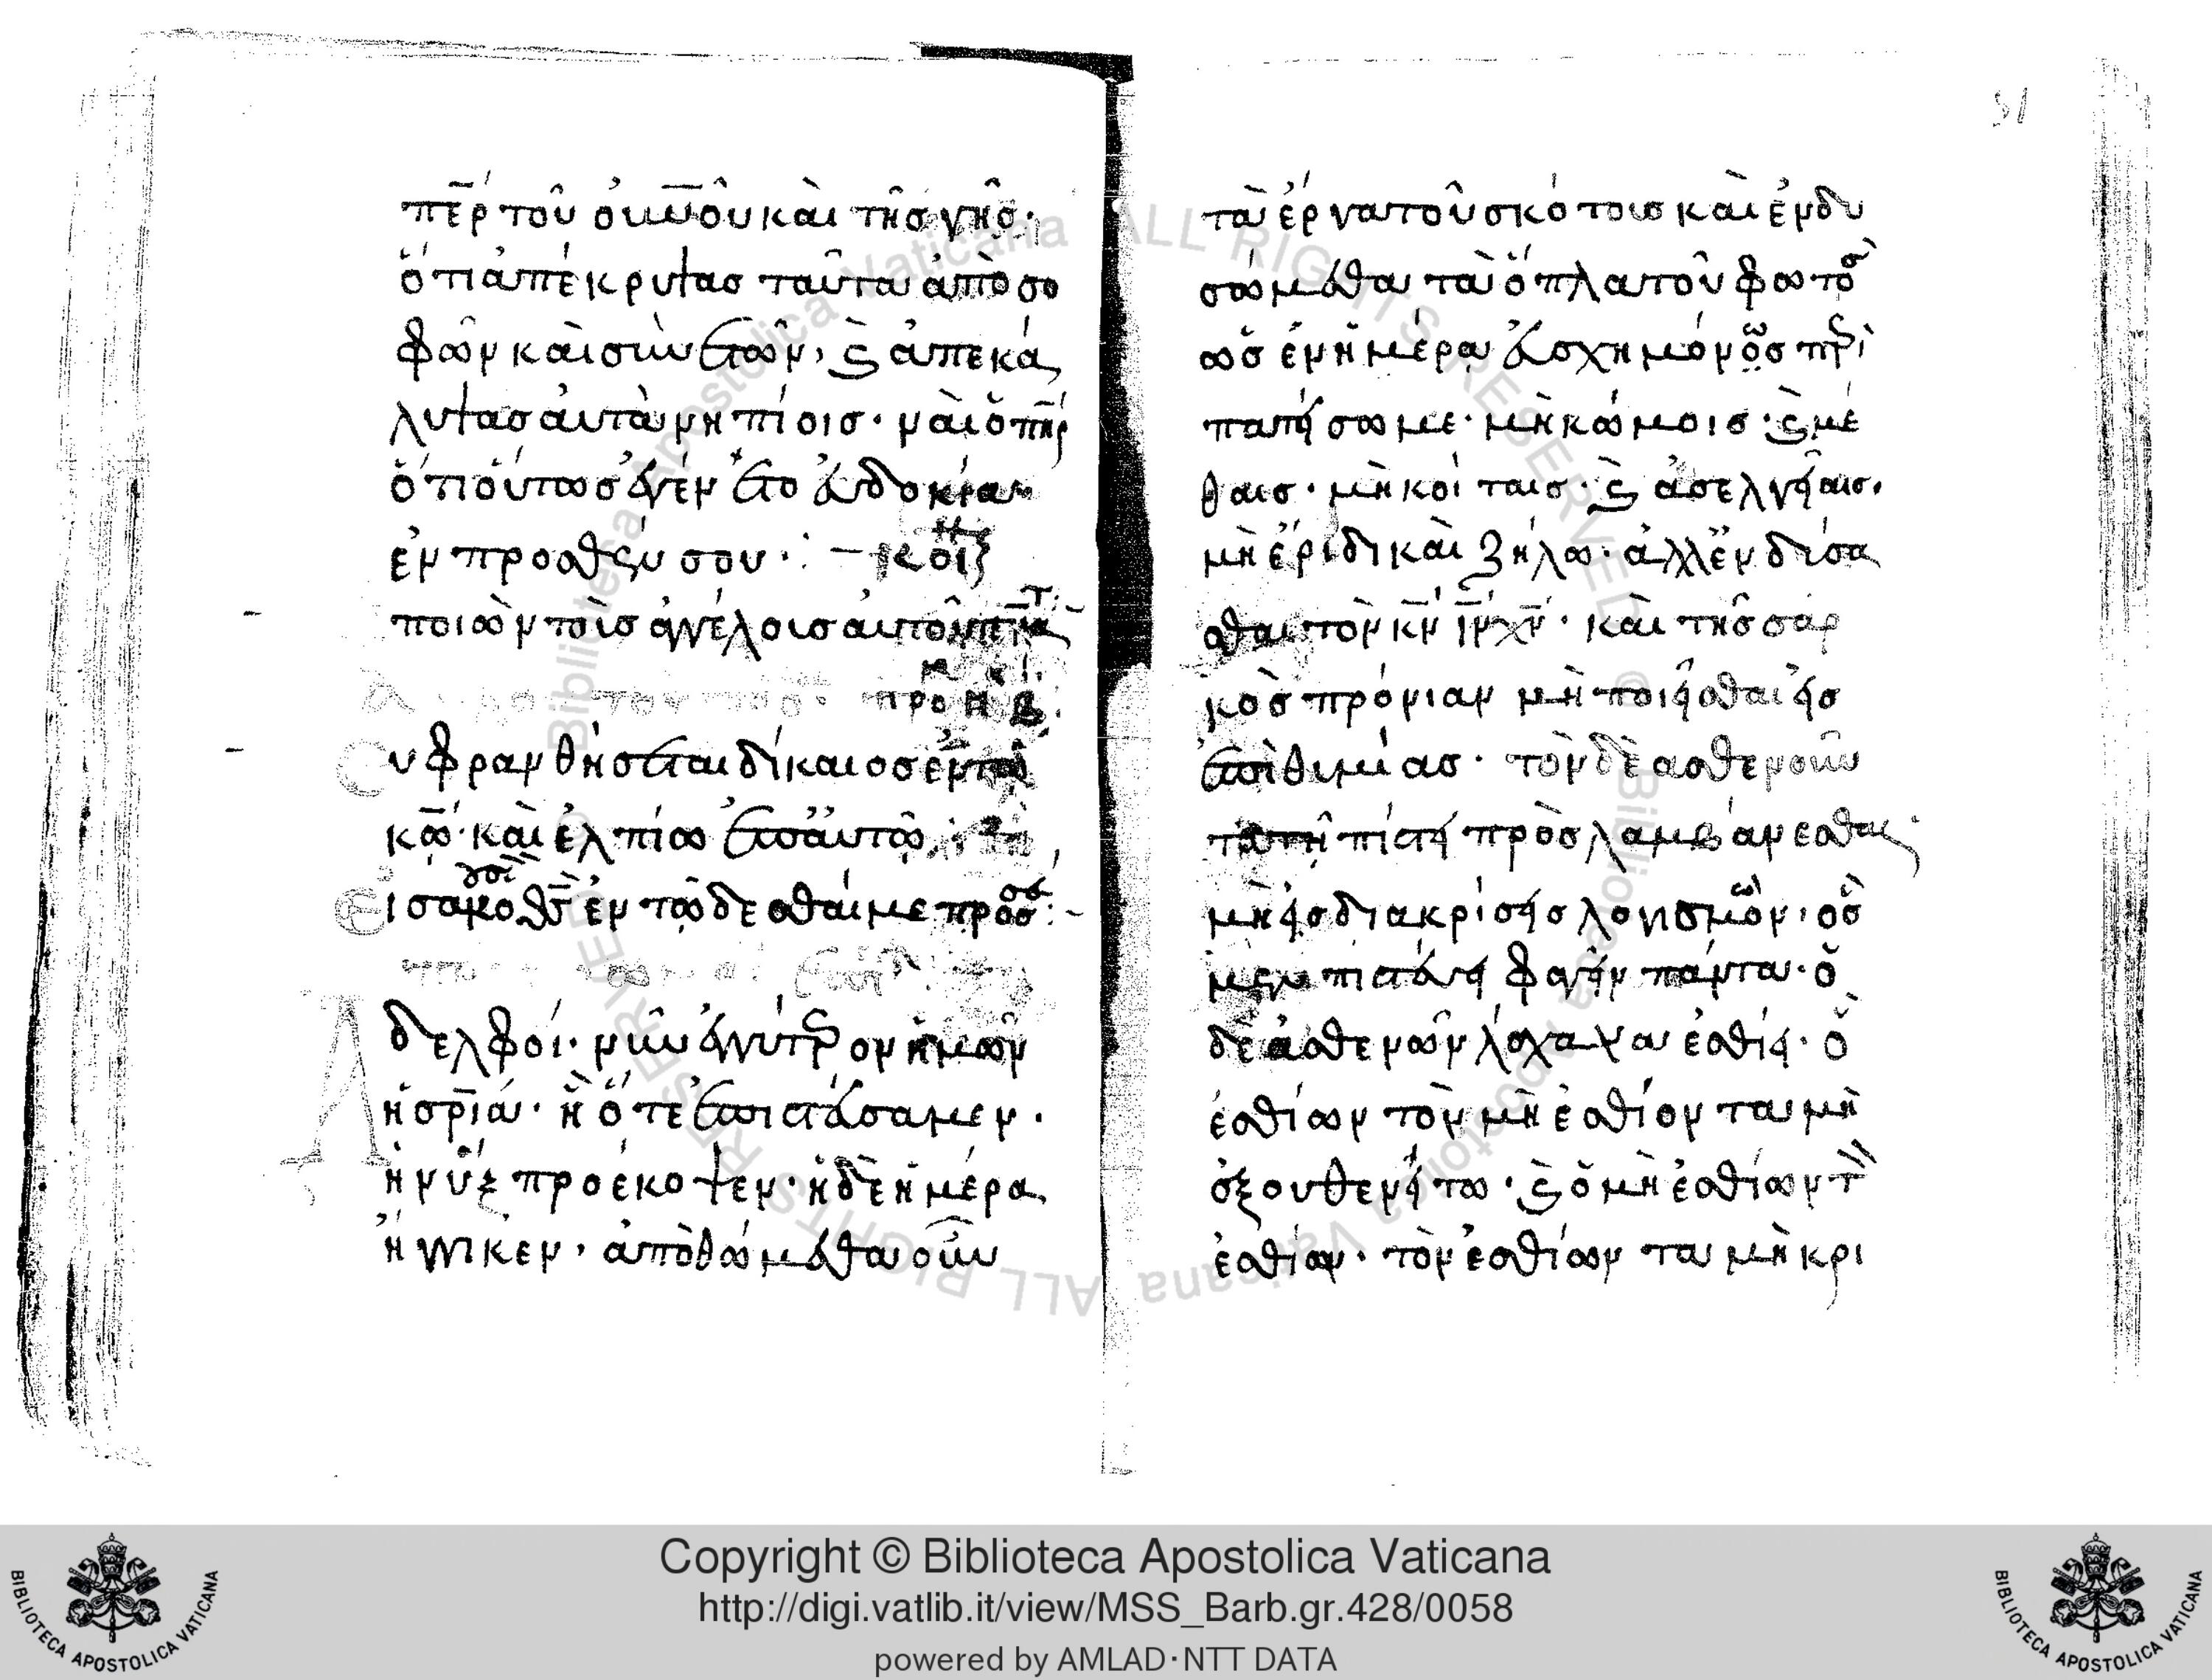 πε̅ρ τοῦ ο̅υ̅νοῦ καὶ τῆσ γῆσ·
ὅτι ἀπέκρυψασ ταῦτα ἀπὸ σο
φῶν καὶ συνετῶν, ϛ ἀπεκά
λυψασ αὐτὰ νηπίοισ· ναὶ ὁ πη̅ρ
ὅτι οὕτωσ ἐγένετο εὐδοκία
ἐμπροσθέν σου·:
ποιῶν τοὺσ ἀγγέλουσ αὐτοῦ πν̅α
υφρανθήσεται δίκαιοσ ἐν τῶ
κ̅ω· καὶ ἐλπίσ ἐπ αὐτῶ
εἰσακ θσ̅ ἐν τῶ δεσθαί με πρὸσ σε:
δελφοί· νῦν ἐγγύτερον ἡμῶν
ἡ σρ̅ία· ἢ ὅτε ἐπιστεύσαμεν·
ἡ νὺξ προέκοψεν· ἡ δὲ ἡμέρα
ἤγγικεν, ἀποθώμεθα οὖν
51
τὰ ἔργα τοῦ σκότουσ καὶ ἐνδυ
σώμεθα τὰ ὅπλα τοῦ φωτὸσ
ὡσ ἐν ἡμέρα εὐσχημόνωσ περι
πατήσωμε· μὴ κώμοισ· ϛ μέ
θαισ· μὴ κοίταισ· ϛ ἀσελγείαισ·
μὴ ἔριδι καὶ ζήλω· ἀλλ ἐνδύσα
σθαι τὸν κ̅ν ι̅ν χ̅ν· καὶ τῆσ σαρ
κὸσ πρόνιαν μὴ ποιεῖσθαι εἰσ
ἐπιθυμίασ· τὸν δὲ ασθενοῦν
τα τῆ πίστει πρὸσλαμβάνεσθαι·
μὴ εἰσ διακρίσεισ λογισμῶν, ὃσ
μεν πιστεύει φαγεῖν πάντα· ὁ
δὲ ἀσθενῶν λάχανα ἐσθίει· ὁ
ἐσθίων τὸν μὴ ἐσθίοντα μὴ
ἐξουθενείτω· ϛ ὁ μὴ ἐσθίων τὸν
ἐσθίον· τὸν ἐσθίωντα μὴ κρι
Copyright © Biblioteca Apostolica Vaticana
http://digi.vatlib.it/view/MSS_Barb.gr.428/0058
powered by AMLAD·NTT DATA